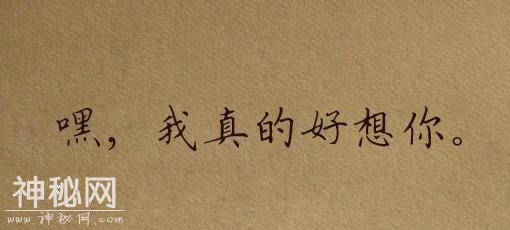 嘿，我真的好想你。
神秘网
www.神秘网.com